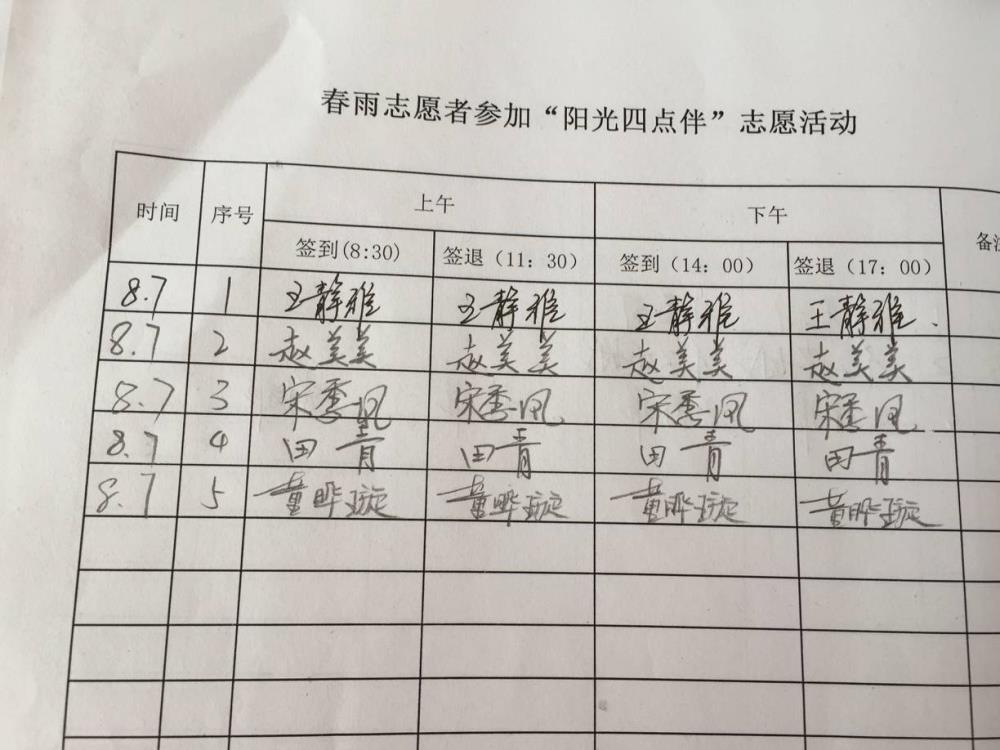 春雨志愿者参加“阳光四点伴”志愿活动
时间 序号 上午 下午 备注
签到(8:30) 签退（11：30） 签到（14：00） 签退（17：00）
8.7 1 王静雅 王静雅 王静雅 王静雅
8.7 2 赵美美 赵美美 赵美美 赵美美
8.7 3 宋季凤 宋季凤 宋季凤 宋季凤
8.7 4 田青 田青 田青 田青
8.7 5 董晔璇 董晔璇 董晔璇 董晔璇